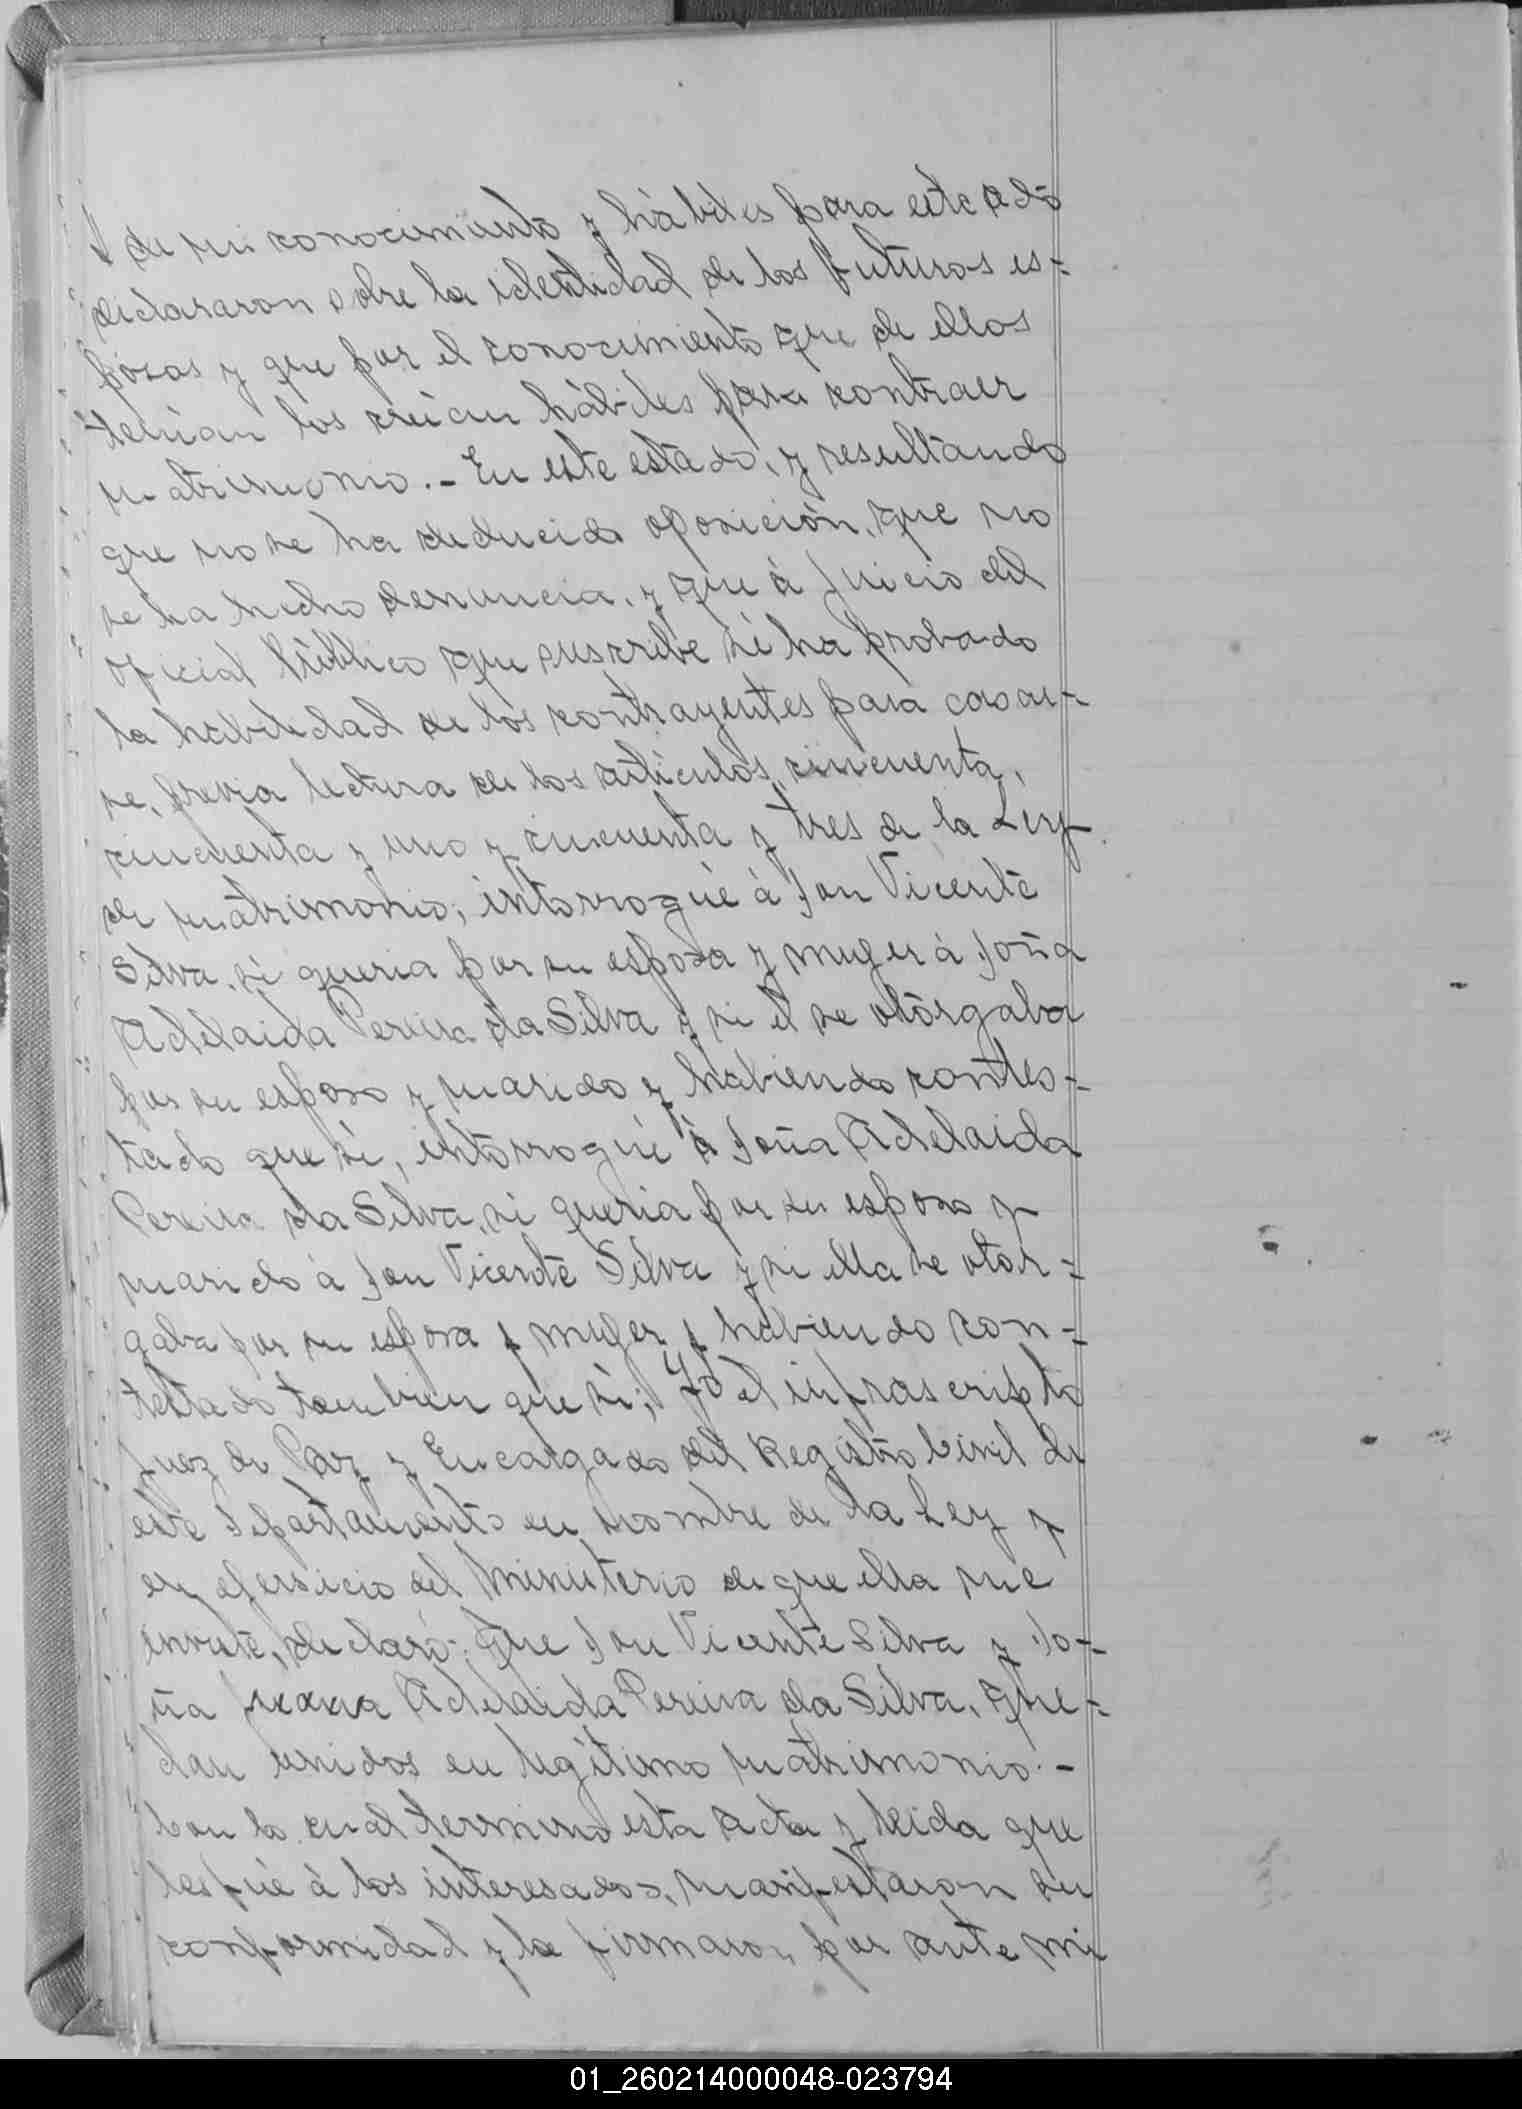 de mi conocimiento y hàbiles para este acto
declararon sobre la identidad de los futuros es-
posos y que por el conocimiento que de ellos
tenian los creian hàbiles para contraer
matrimonio.- En este estado, y resultando
que no se ha deducido oposición, que no
se ha hecho denuncia, y que à juicio del
oficial Público que suscribe se ha probado
la habilidad de los contrayentes para casar-
se, previa lectura de los artículos cincuenta,
cincuenta y uno y cincuenta y tres de la Ley
de matrimonio; intorrogué à Don Vicente
Silva, si queria por su esposa y muger à Doña
Adelaida Pereira da Silva y si èl se otorgaba
por su esposo y marido y habiendo contes-
tado que si, intorrogué à Doña Adelaida
Pereira da Silva, si queria por su esposo y
marido à Don Vicente Silva y si ella se otor-
gaba por su esposa y muger y habiendo con-
testado tambien que si; Yo el infrascripto
Juez de Paz y Encargado del Registro Civil de
este Departamento en nombre de la Ley y
en ejersicio del Ministerio de que ella me
inviste, declaro: Que Don Vicente Silva y Do-
ña Juana Adelaida Pereira da Silva, que-
dan unidos en legítimo matrimonio.-
Con lo cual termino esta acta y leida que
les fué à los interesados, manifestaron su
conformidad y la firmaron por ante mi
01_260214000048-023794